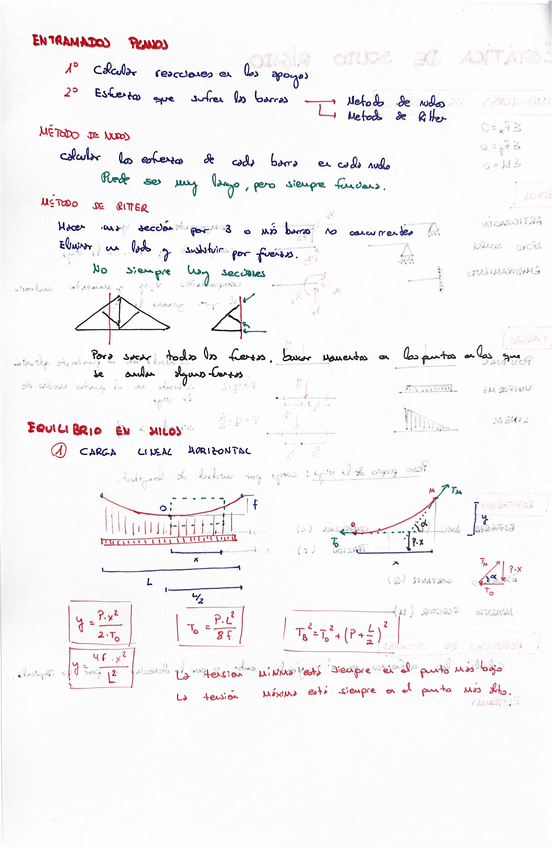 ENTRAMADOS PLANOS
1º Calcular reacciones en los apoyos
2º Esfuerzos que sufren las barras → Metodo de nudos
→ Metodo de Ritter
MÉTODO DE NUDOS
Calcular los esfuerzos de cada barra en cada nudo
Puede ser muy largo, pero siempre funciona.
MÉTODO DE RITTER
Hacer una sección por 3 o más barras no concurrentes
Eliminar un lado y sustituir por fuerzas.
No siempre hay secciones
Para sacar todas las fuerzas, buscar momentos en los puntos en los que
se anulan algunas fuerzas
EQUILIBRIO EN HILOS
① CARGA LINEAL HORIZONTAL
O f
x
L
L/2
T₀ O P·x α M T_M y
x
T_M P·x α T₀
y = P·x² / 2·T₀
T₀ = P·L² / 8f
T_B² = T₀² + (P + L/2)²
y = 4f·x² / L²
La tensión mínima está siempre en el punto más bajo
La tensión máxima está siempre en el punto más alto.